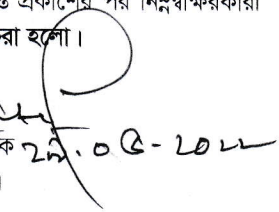 প্রকাশের পর নিম্নস্বাক্ষরকারী
রা হলো।
ক ২৯.০৫-২০২২